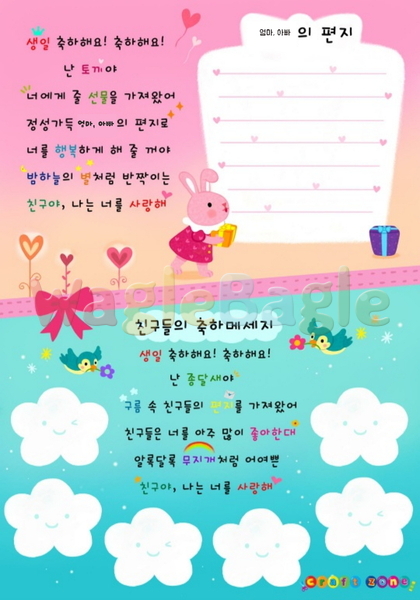 생일 축하해요! 축하해요!
난 토끼야
너에게 줄 선물을 가져왔어
정성가득 엄마, 아빠 의 편지로
너를 행복하게 해 줄 꺼야
밤하늘의 별처럼 반짝이는
친구야, 나는 너를 사랑해
엄마, 아빠 의 편지
WagleBagle
친구들의 축하메세지
생일 축하해요! 축하해요!
난 종달새야
구름 속 친구들의 편지를 가져왔어
친구들은 너를 아주 많이 좋아한대
알록달록 무지개처럼 어여쁜
친구야, 나는 너를 사랑해
Craft Zone